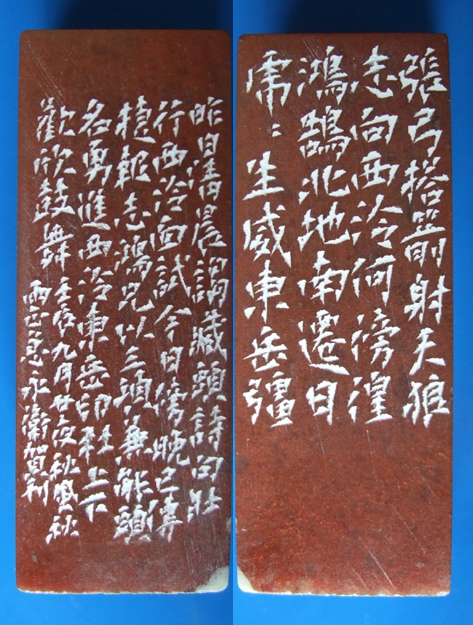 張弓搭箭射天狼
志向西泠何傍徨
鴻鵠北地南遷日
虎〻生威東岳疆
昨日清晨調藏頭詩句壯
行西泠面試今日傍晚已傳
捷報志鴻兄以三項能頭
名勇進西泠東岳印社上下
歡欣鼓舞壬辰九月廿夜秋風秋
雨永衛賀刻